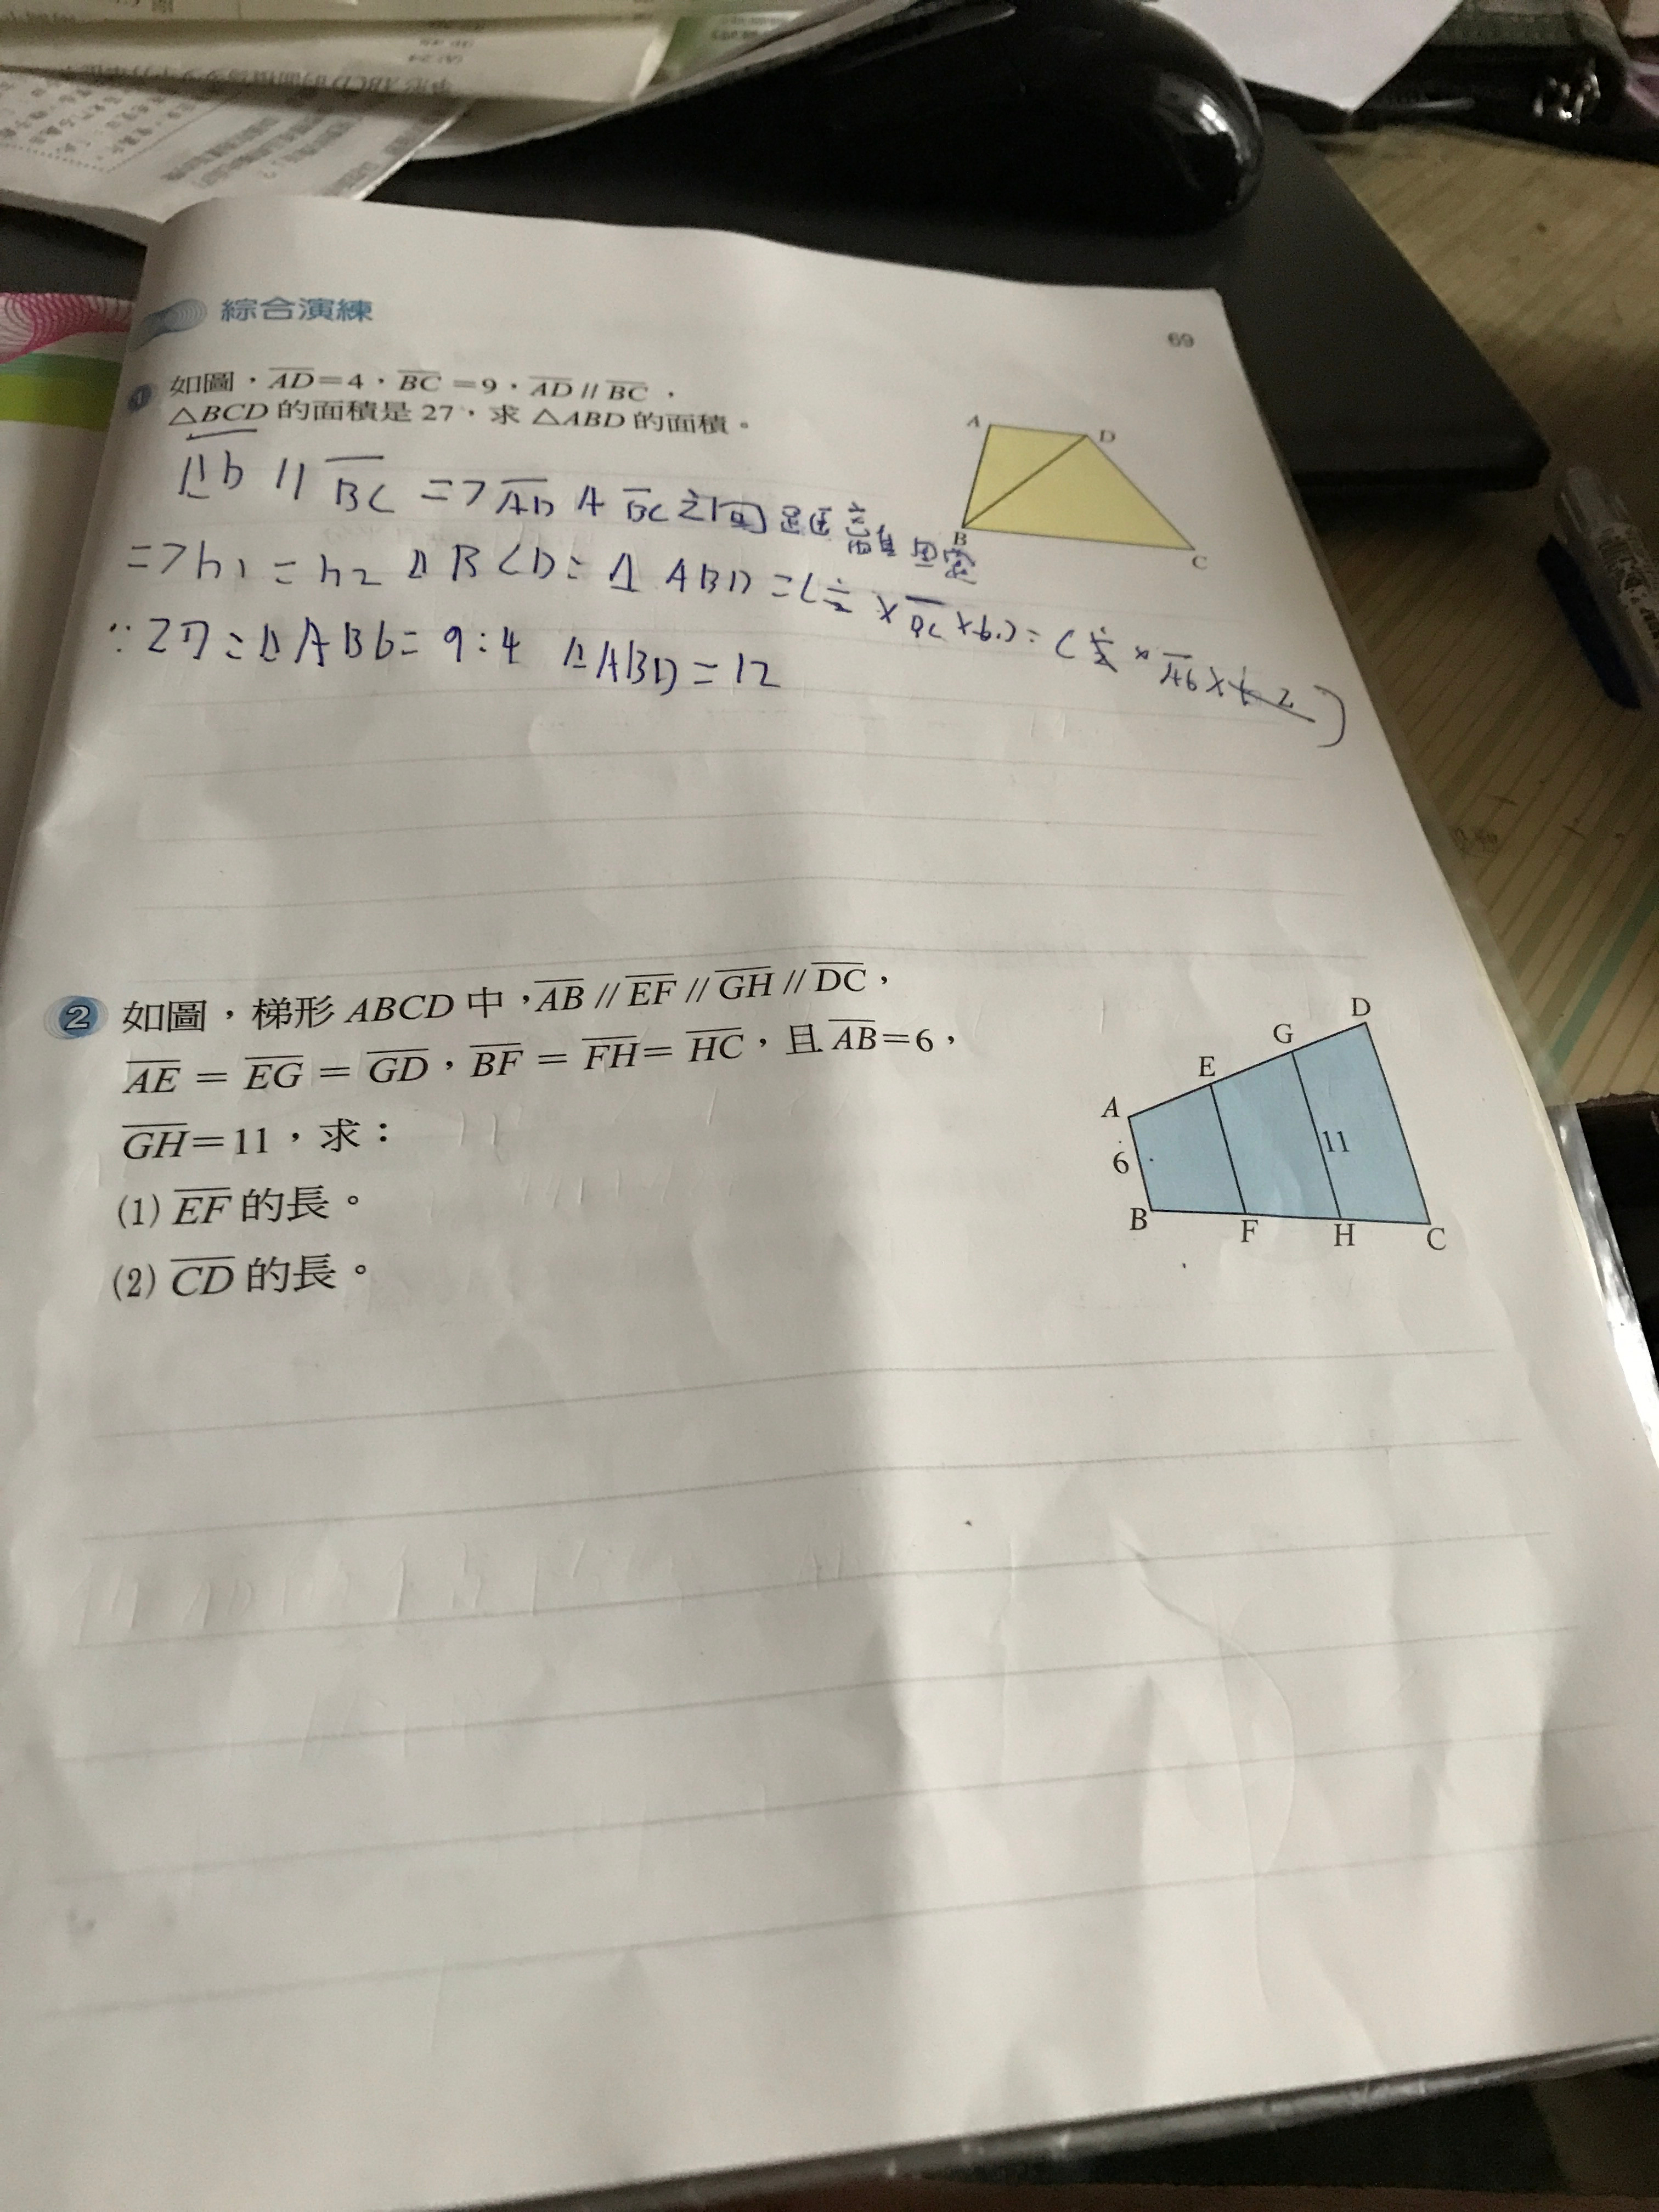 綜合演練
69
1 如圖,AD=4,BC=9,AD // BC,
△BCD 的面積是 27,求 △ABD 的面積。
A
D
B
C
// BC => AD BC 之間
=> h1 = h2 △BCD : △ABD =
∵ 27 : △ABD = 9 : 4 △ABD = 12
2 如圖,梯形 ABCD 中,AB // EF // GH // DC,
AE = EG = GD,BF = FH = HC,且 AB=6,
GH=11,求:
(1) EF 的長。
(2) CD 的長。
D
G
E
A
6
11
B
F
H
C